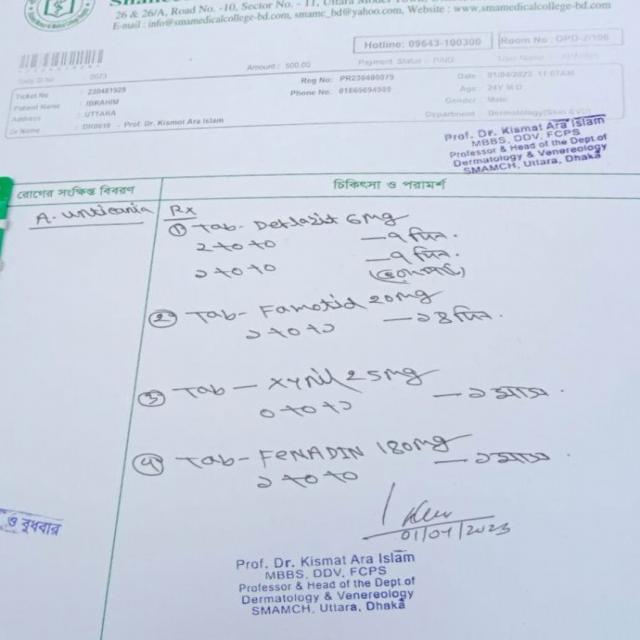 26 & 26/A, Road No. -10, Sector No. - 11, Uttara Model Town,
E-mail : info@smamedicalcollege-bd.com, smamc_bd@yahoo.com, Website : www.smamedicalcollege-bd.com
Hotline: 09643-100300 Room No : OPD-2/106
2023 Amount : 500.00 Payment Status : PAID
Ticket No : 230481929 Reg No: PR230480079 Date : 01/04/2023 11:07AM
Patient Name : IBRAHIM Phone No. Age : 24Y M D
Address : UTTARA Gender : Male
Dr Name - Prof. Dr. Kismat Ara Islam Department :
Prof. Dr. Kismat Ara Islam
MBBS, DDV, FCPS
Professor & Head of the Dept.of
Dermatology & Venereology
SMAMCH, Uttara, Dhaka
রোগের সংক্ষিপ্ত বিবরণ চিকিৎসা ও পরামর্শ
A. urticaria Rx
① Tab- 6mg
২+০+০ — ৭ দিন.
১+০+০ — ৭ দিন.
② Tab- Famotid 20mg
১+০+১ — ১৪ দিন.
③ Tab — Xynil 25mg
০+০+১ — ১ মাস.
④ Tab- FENADIN 180mg
১+০+০ — ১ মাস.
01/04/2023
ও বুধবার
Prof. Dr. Kismat Ara Islam
MBBS, DDV, FCPS
Professor & Head of the Dept.of
Dermatology & Venereology
SMAMCH, Uttara, Dhaka